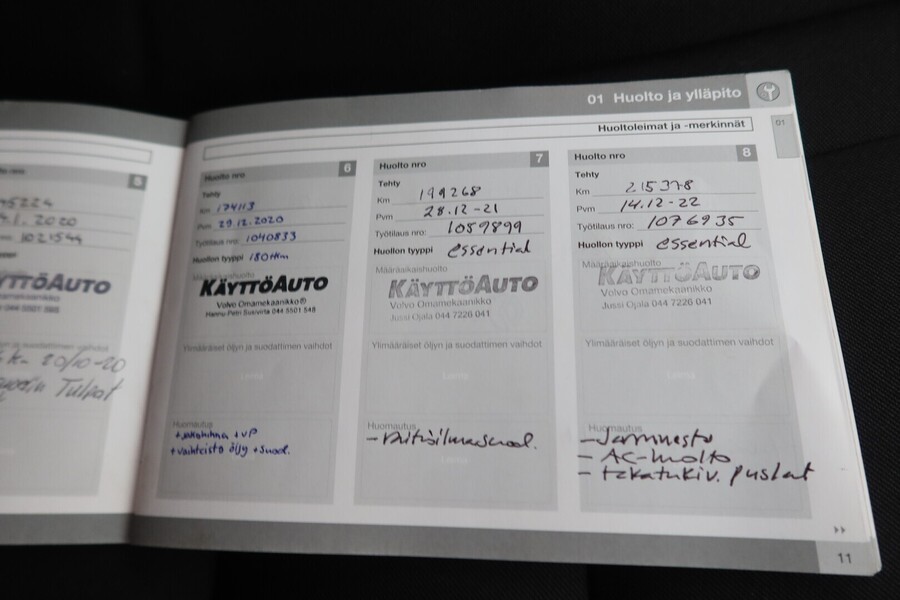 01 Huolto ja ylläpito
Huoltoleimat ja -merkinnät
01
5
45224
1. 2020
1021544
KÄYTTÖAUTO
20/10-20
Tulpat
Huolto nro 6
Tehty
Km 174113
Pvm 29.12.2020
Työtilaus nro: 1040833
Huollon tyyppi 180tkm
Määräaikaishuolto
KÄYTTÖAUTO
Volvo Omamekaanikko®
Hannu-Petri Susivirta 044 5501 548
Ylimääräiset öljyn ja suodattimen vaihdot
Leima
Huomautus
+jakohihna +VP
+vaihteisto öljy +suod.
Huolto nro 7
Tehty
Km 199268
Pvm 28.12-21
Työtilaus nro: 1059899
Huollon tyyppi essential
Määräaikaishuolto
KÄYTTÖAUTO
Volvo Omamekaanikko
Jussi Ojala 044 7226 041
Ylimääräiset öljyn ja suodattimen vaihdot
Leima
Huomautus
- Raitisilmasuod.
Huolto nro 8
Tehty
Km 215378
Pvm 14.12-22
Työtilaus nro: 1076935
Huollon tyyppi essential
Määräaikaishuolto
KÄYTTÖAUTO
Volvo Omamekaanikko
Jussi Ojala 044 7226 041
Ylimääräiset öljyn ja suodattimen vaihdot
Leima
Huomautus
- Jarruneste
- AC-huolto
- takatukiv. puslat
11